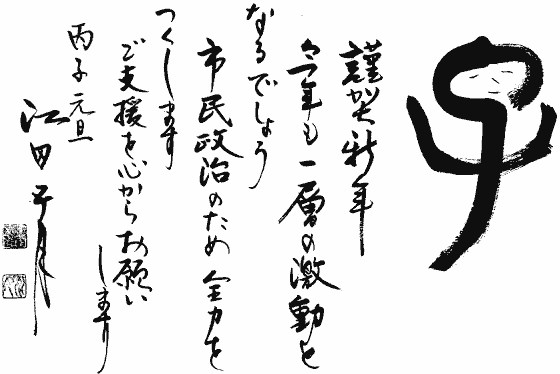 子
謹賀新年
今年も一層の激動と
なるでしょう
市民政治のため全力を
つくします
ご支援を心からお願い
します
丙子元旦
江田五月